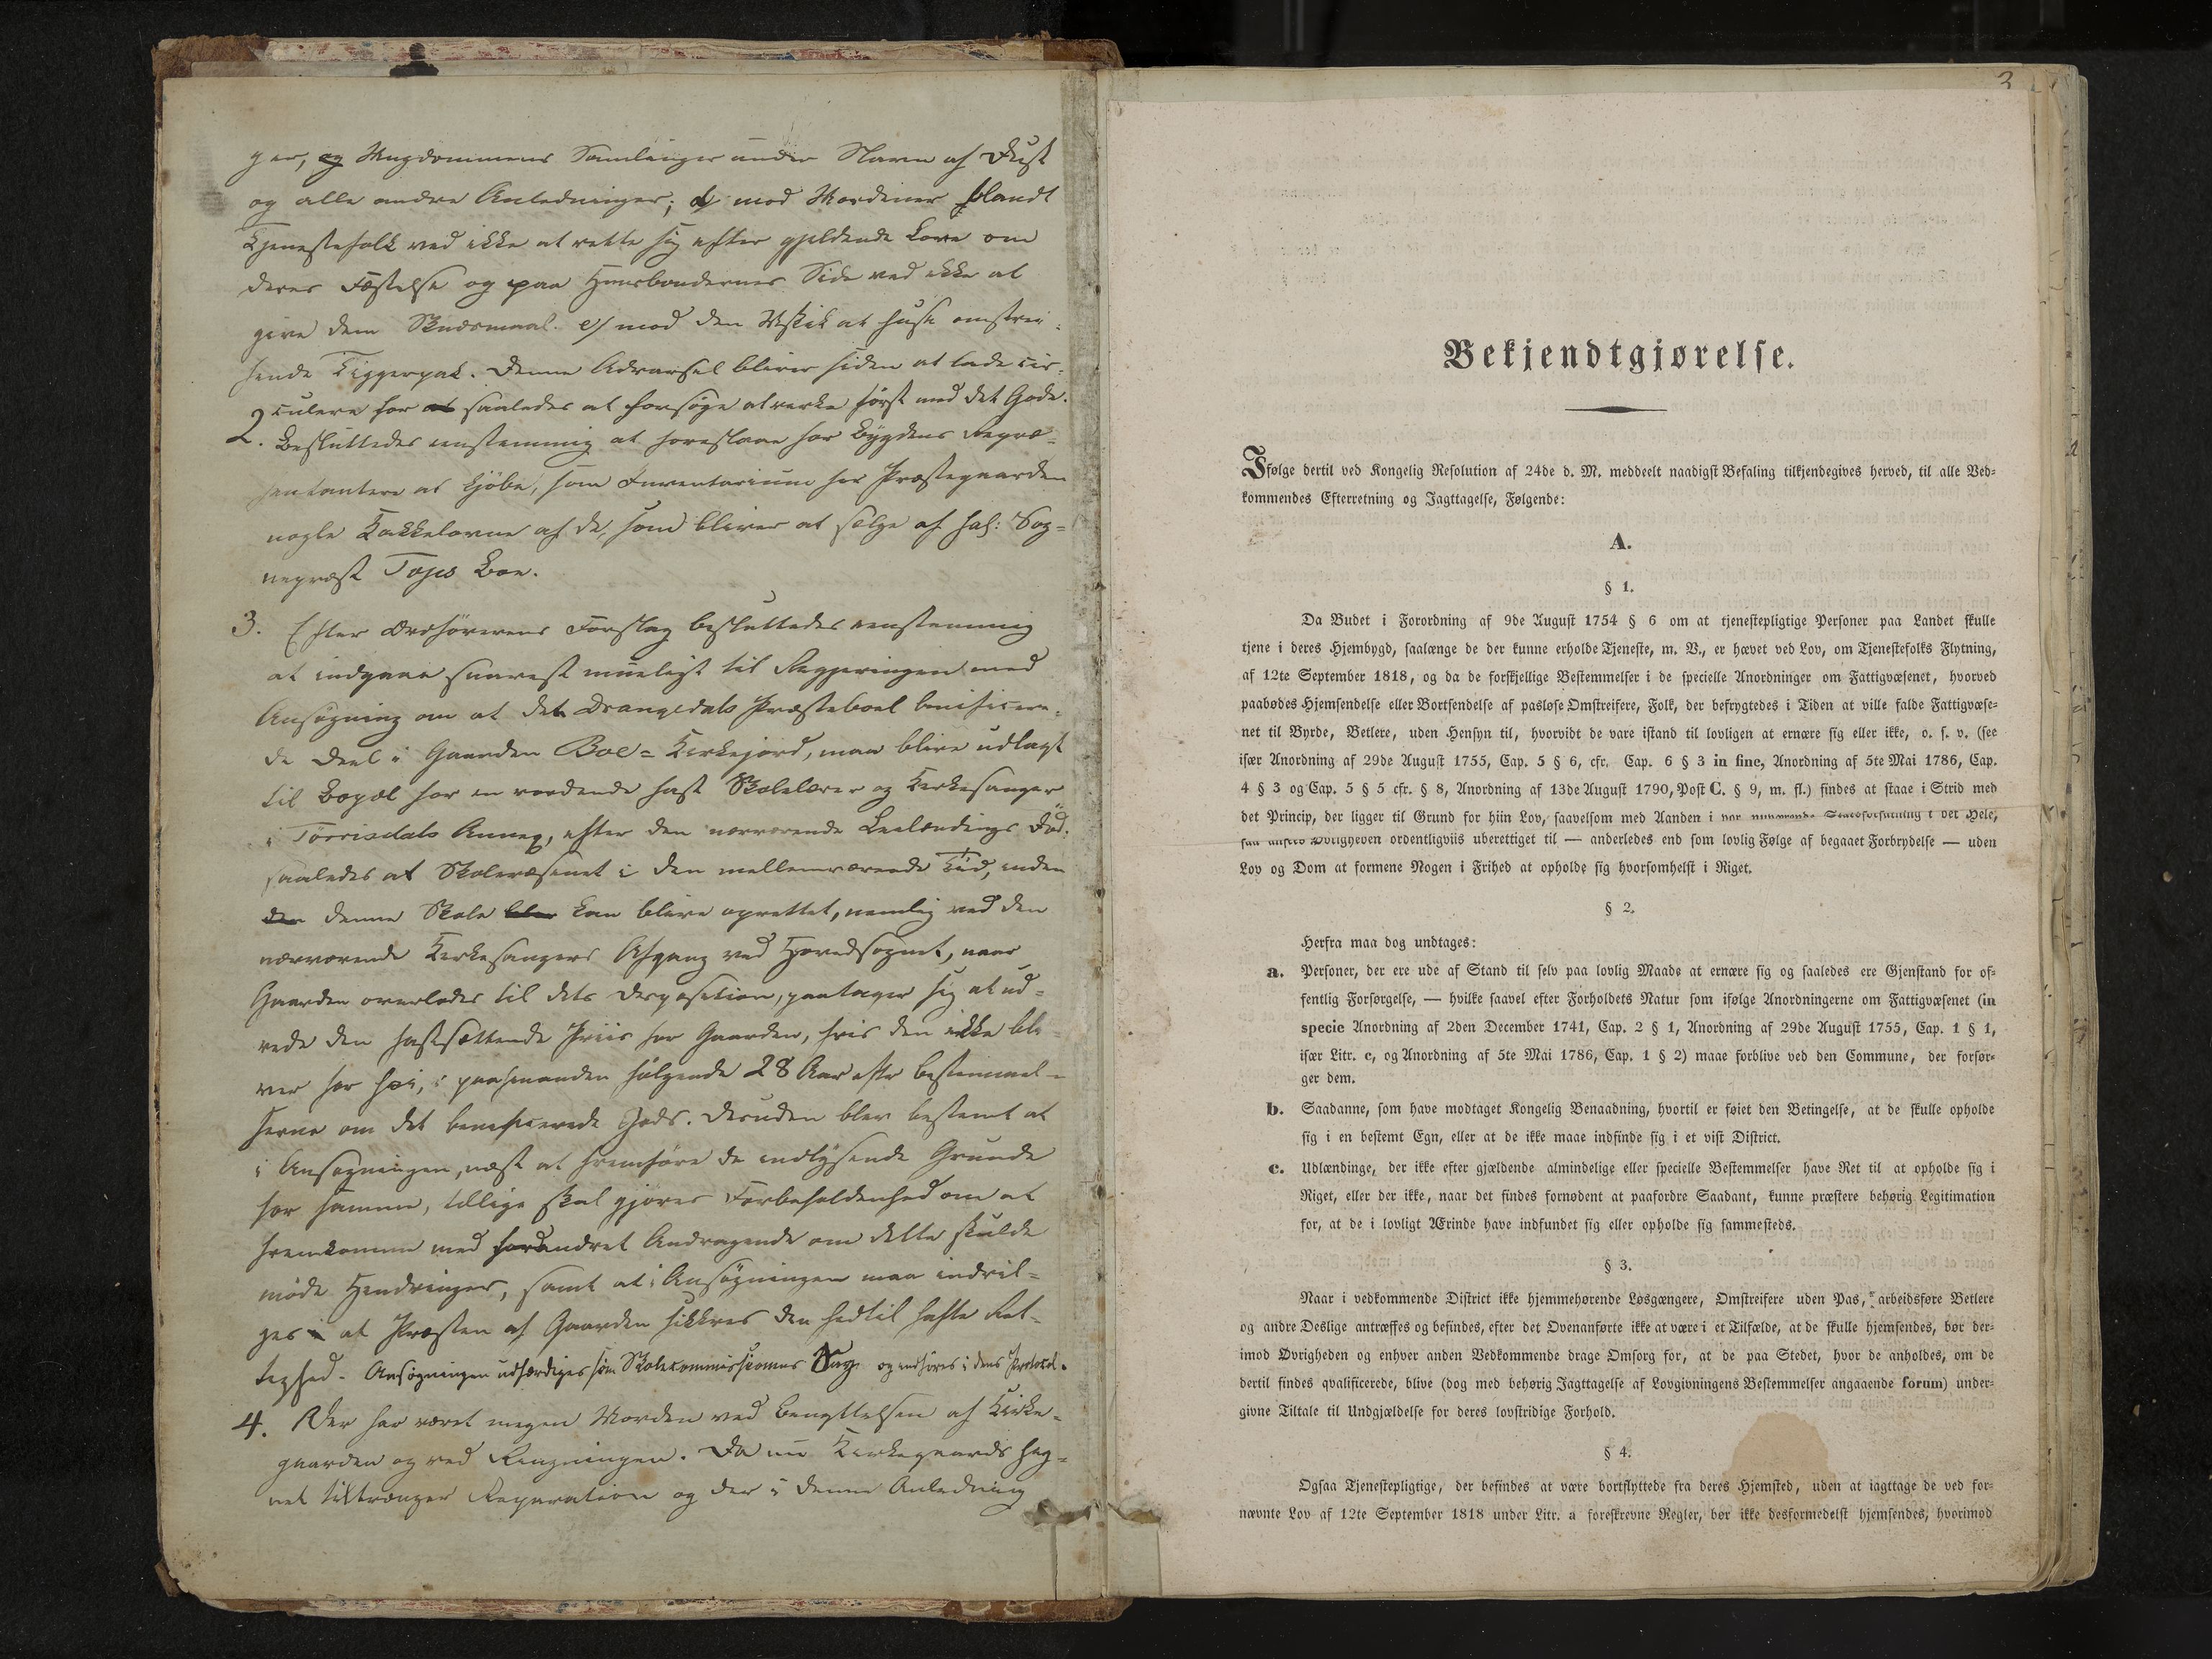 ger, og Ungdommens Samlinger under Navn af Dust
og alle andre Anledninger; d) mod Uordener blandt
Tjenestefolk ved ikke at rette sig efter gjeldende Love om
deres Fæstelse og paa Huusbondernes Side ved ikke at
give dem Skudsmaal. e) mod den Uskik at huse omstrei-
fende Tiggerpak. Denne Advarsel bliver siden at lade cir-
culere for at saaledes at forsøge at virke først med det Gode.
2. Besluttedes eenstemmig at foreslaae for Bÿgdens Repræ-
sentantere at kjöbe, som Inventarium for Præstegaarden
nogle Kakkelovne af de, som bliver at sælge af sal: Sog-
nepræst Boe.
3. Efter Ordførerens Forslag besluttedes eenstemmig
at indgaae snarest mueligt til Regjeringen med
Ansøgning om at det Drangedals Præsteboel benificere-
de Deel i Gaarden Boe- Kirkejord, maa blive udlagt
til Bopæl for en vordende fast Skolelærer og Kirkesanger
i Törrisdals Annex, efter den nærværende Leilændings Död,
saaledes at Skolevæsenet i den mellemværende Tid, inden
den denne Skole bliv kan blive oprettet, nemlig ved den
nærværende Kirkesangers Afgang ved Hovedsognet, naar
Gaarden overlades til dets Disposition, paatager sig at ud-
rede den fastsættende Priis for Gaarden, hvis den ikke bli-
ver for høi, i paafølgende 28 Aar efter Bestemmel-
serne om det beneficerede Gods. Desuden blev bestemt at
i Ansøgningen, næst at fremføre de indlysende Grunde
for samme, tillige skal gjøres Forbeholdenhed om at
fremkomme med forandret Andragende om dette skulde
møde Hindringer, samt at i Ansögningen maa indvil-
ges i at Præsten af Gaarden sikkres den hidtil hafte Ret-
tighed. Ansögningen udfærdiges som Skolecommissionens Sag og indføres i dens Protocol.
4. Der har været megen Uorden ved Benyttelsen af Kirke-
gaarden og ved Ringningen. Da nu Kirkegaards Heg-
net tiltrænger Reparation og der i denne Anledning
3
Bekjendtgjørelse.
Ifølge dertil ved Kongelig Resolution af 24de d. M. meddeelt naadigst Befaling tilkjendegives herved, til alle Ved-
kommendes Efterretning og Iagttagelse, Følgende:
A.
§ 1.
Da Budet i Forordning af 9de August 1754 § 6 om at tjenestepligtige Personer paa Landet skulle
tjene i deres Hjembygd, saalænge de der kunne erholde Tjeneste, m. V., er hævet ved Lov, om Tjenestefolks Flytning,
af 12te September 1818, og da de forskjellige Bestemmelser i de specielle Anordninger om Fattigvæsenet, hvorved
paabødes Hjemsendelse eller Bortsendelse af pasløse Omstreifere, Folk, der befrygtedes i Tiden at ville falde Fattigvæse-
net til Byrde, Betlere, uden Hensyn til, hvorvidt de vare istand til lovligen at ernære sig eller ikke, o. s. v. (see
især Anordning af 29de August 1755, Cap. 5 § 6, cfr. Cap. 6 § 3 in fine, Anordning af 5te Mai 1786, Cap.
4 § 3 og Cap. 5 § 5 cfr. § 8, Anordning af 13de August 1790, Post C. § 9, m. fl.) findes at staae i Strid med
det Princip, der ligger til Grund for hiin Lov, saavelsom med Aanden i vor nuværende Statsforfatning i det Hele,
saa ansees Øvrigheden ordentligviis uberettiget til — anderledes end som lovlig Følge af begaaet Forbrydelse — uden
Lov og Dom at formene Nogen i Frihed at opholde sig hvorsomhelst i Riget.
§ 2.
Herfra maa dog undtages:
a. Personer, der ere ude af Stand til selv paa lovlig Maade at ernære sig og saaledes ere Gjenstand for of-
fentlig Forsørgelse, — hvilke saavel efter Forholdets Natur som ifølge Anordningerne om Fattigvæsenet (in
specie Anordning af 2den December 1741, Cap. 2 § 1, Anordning af 29de August 1755, Cap. 1 § 1,
især Litr. c, og Anordning af 5te Mai 1786, Cap. 1 § 2) maae forblive ved den Commune, der forsør-
ger dem.
b. Saadanne, som have modtaget Kongelig Benaadning, hvortil er føiet den Betingelse, at de skulle opholde
sig i en bestemt Egn, eller at de ikke maae indfinde sig i et vist District.
c. Udlændinge, der ikke efter gjældende almindelige eller specielle Bestemmelser have Ret til at opholde sig i
Riget, eller der ikke, naar det findes fornødent at paafordre Saadant, kunne præstere behørig Legitimation
for, at de i lovligt Ærinde have indfundet sig eller opholde sig sammesteds.
§ 3.
Naar i vedkommende District ikke hjemmehørende Løsgængere, Omstreifere uden Pas, arbeidsføre Betlere
og andre Deslige antræffes og befindes, efter det Ovenanførte ikke at være i et Tilfælde, at de skulle hjemsendes, bør der-
imod Øvrigheden og enhver anden Vedkommende drage Omsorg for, at de paa Stedet, hvor de anholdes, om de
dertil findes qvalificerede, blive (dog med behørig Iagttagelse af Lovgivningens Bestemmelser angaaende forum) under-
givne Tiltale til Undgjældelse for deres lovstridige Forhold.
§ 4.
Ogsaa Tjenestepligtige, der befindes at være bortflyttede fra deres Hjemsted, uden at iagttage de ved for-
nævnte Lov af 12te September 1818 under Litr. a foreskrevne Regler, bør ikke desformedelst hjemsendes, hvorimod